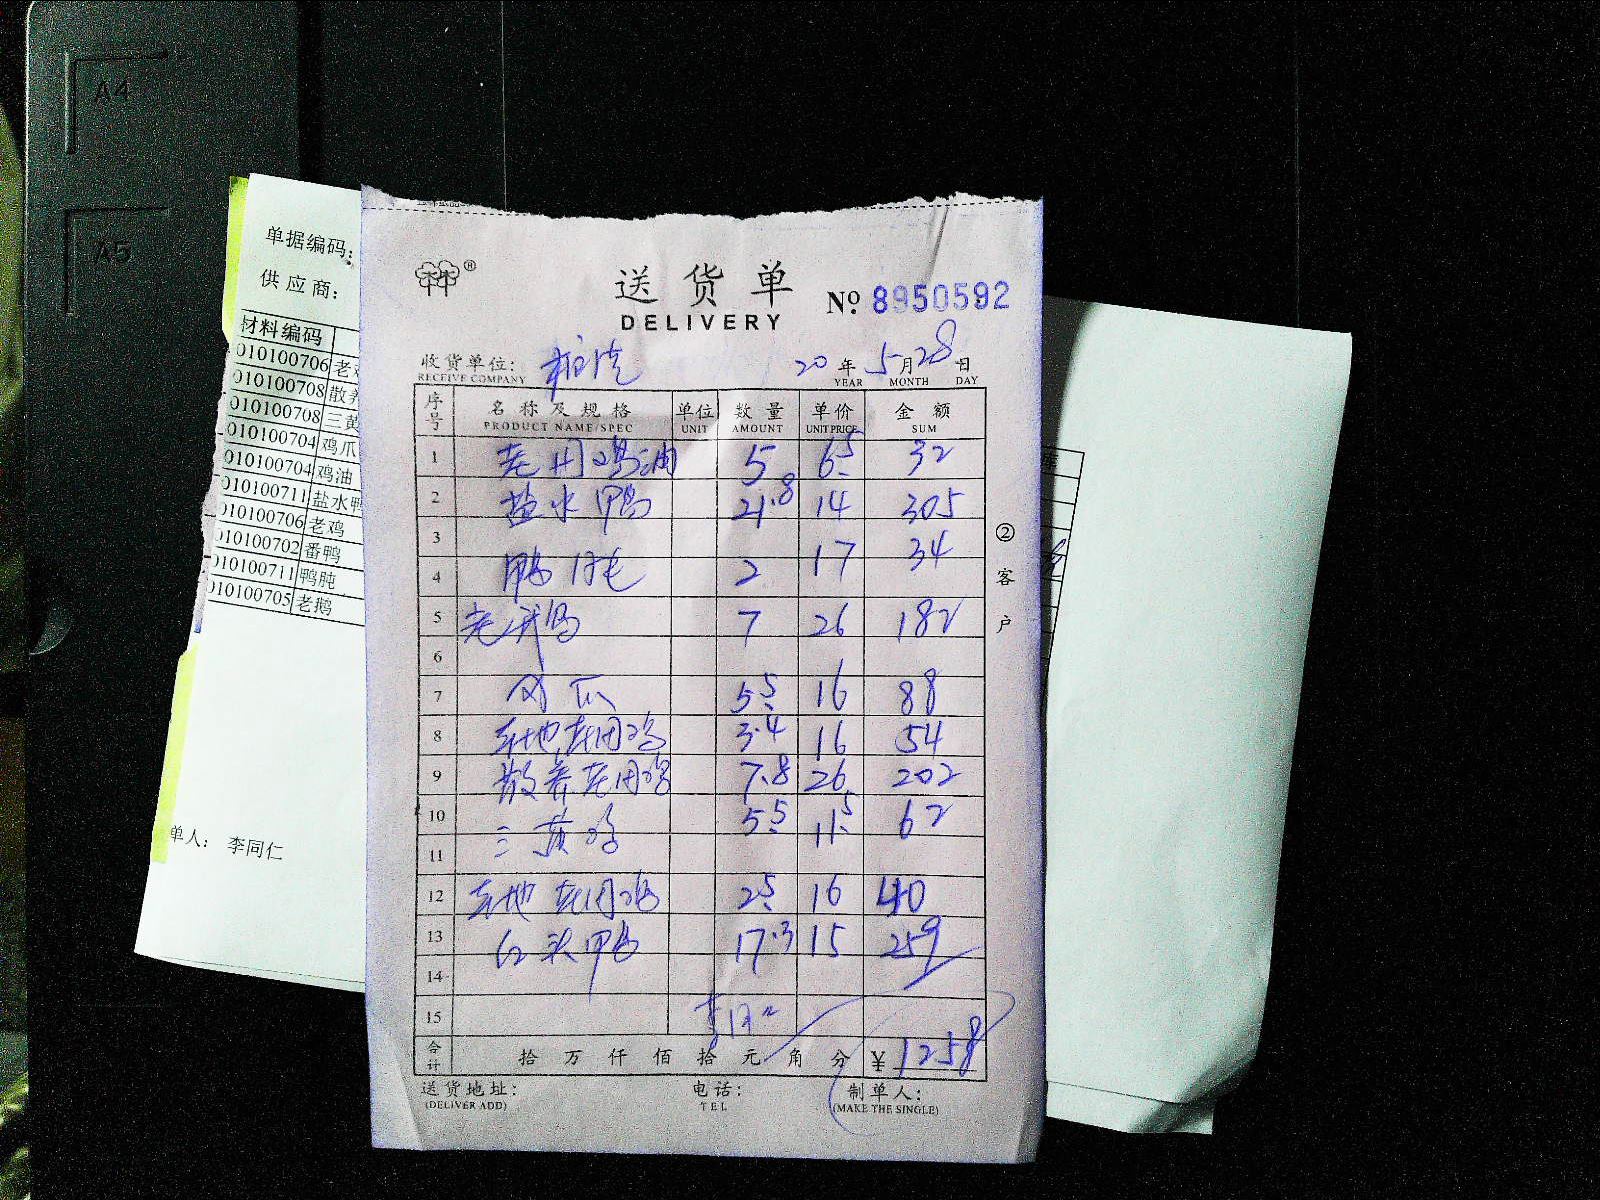 A4
A5
单据编码:
供应商:
材料编码
010100706 老
010100708 散养
010100708 三黄
010100704 鸡爪
010100704 鸡油
010100711 盐水鸭
010100706 老鸡
010100702 番鸭
010100711 鸭肫
010100705 老鹅
单人: 李同仁
送货单
DELIVERY
No. 8950592
收货单位:
RECEIVE COMPANY
20 年 5 月 28 日
YEAR MONTH DAY
序号 名称及规格 单位 数量 单价 金额
PRODUCT NAME/SPEC UNIT AMOUNT UNIT PRICE SUM
1 鸡油 5 6.5 32
2 盐水鸭 21.8 14 305
3 17 34
4 鸭 2
5 老 7 26 182
6
7 爪 5.5 16 88
8 3.4 16 54
9 散养老 鸡 7.8 26 202
10 三黄鸡 5.5 11.5 62
11
12 2.5 16 40
13 红头鸭 17.3 15 259
14
15
合计 拾 万 仟 佰 拾 元 角 分 ¥ 1258
②客户
送货地址: 电话: 制单人:
(DELIVER ADD) TEL (MAKE THE SINGLE)